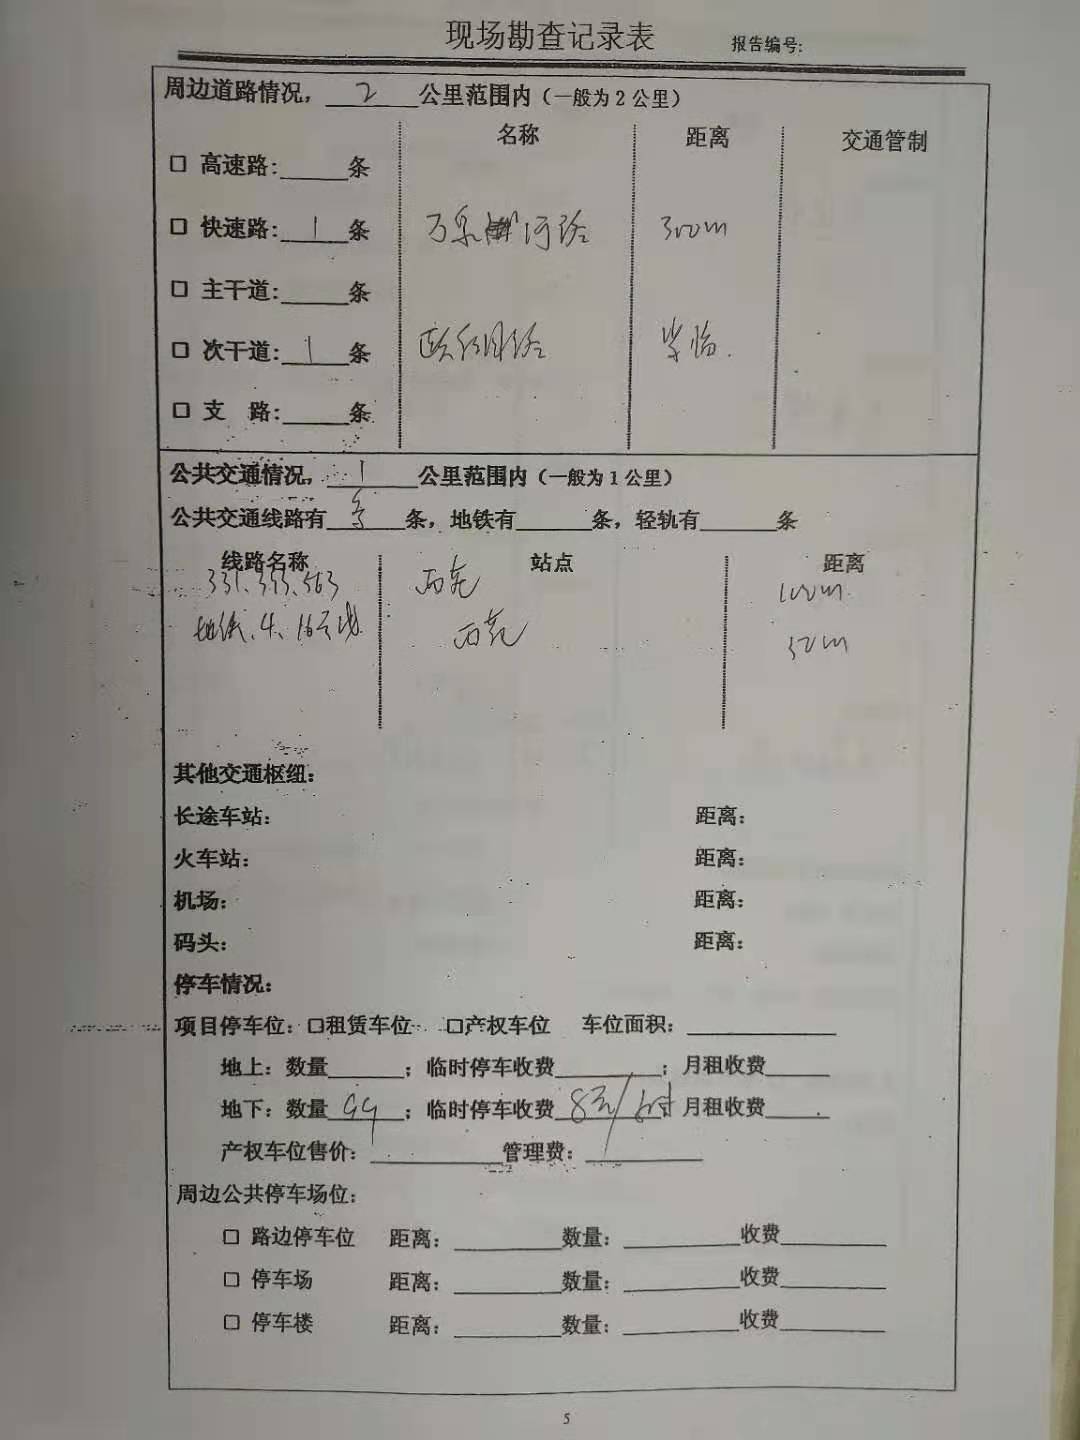 现场勘查记录表 报告编号:
周边道路情况，2公里范围内（一般为2公里）
名称 距离 交通管制
□ 高速路:______条
□ 快速路:1条 万泉河路 300m
□ 主干道:______条
□ 次干道:1条 颐和园路 紧临.
□ 支 路:______条
公共交通情况，1公里范围内（一般为1公里）
公共交通线路有多条，地铁有______条，轻轨有______条
线路名称 站点 距离
西苑 100m
地铁、4、16号线 西苑 50m
其他交通枢纽：
长途车站： 距离：
火车站： 距离：
机场： 距离：
码头： 距离：
停车情况：
项目停车位：□租赁车位 □产权车位 车位面积：______
地上：数量______；临时停车收费______；月租收费______
地下：数量99；临时停车收费8元/小时 月租收费______
产权车位售价：______管理费：______
周边公共停车场位：
□ 路边停车位 距离：______数量：______收费______
□ 停车场 距离：______数量：______收费______
□ 停车楼 距离：______数量：______收费______
5